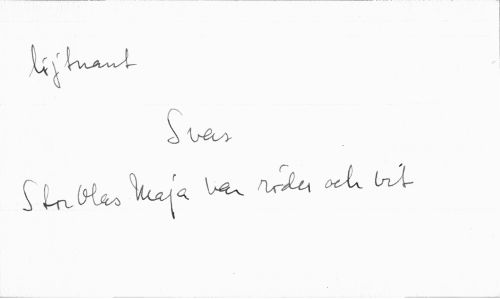 löjtnant
StorOlas Maja var röder och vit